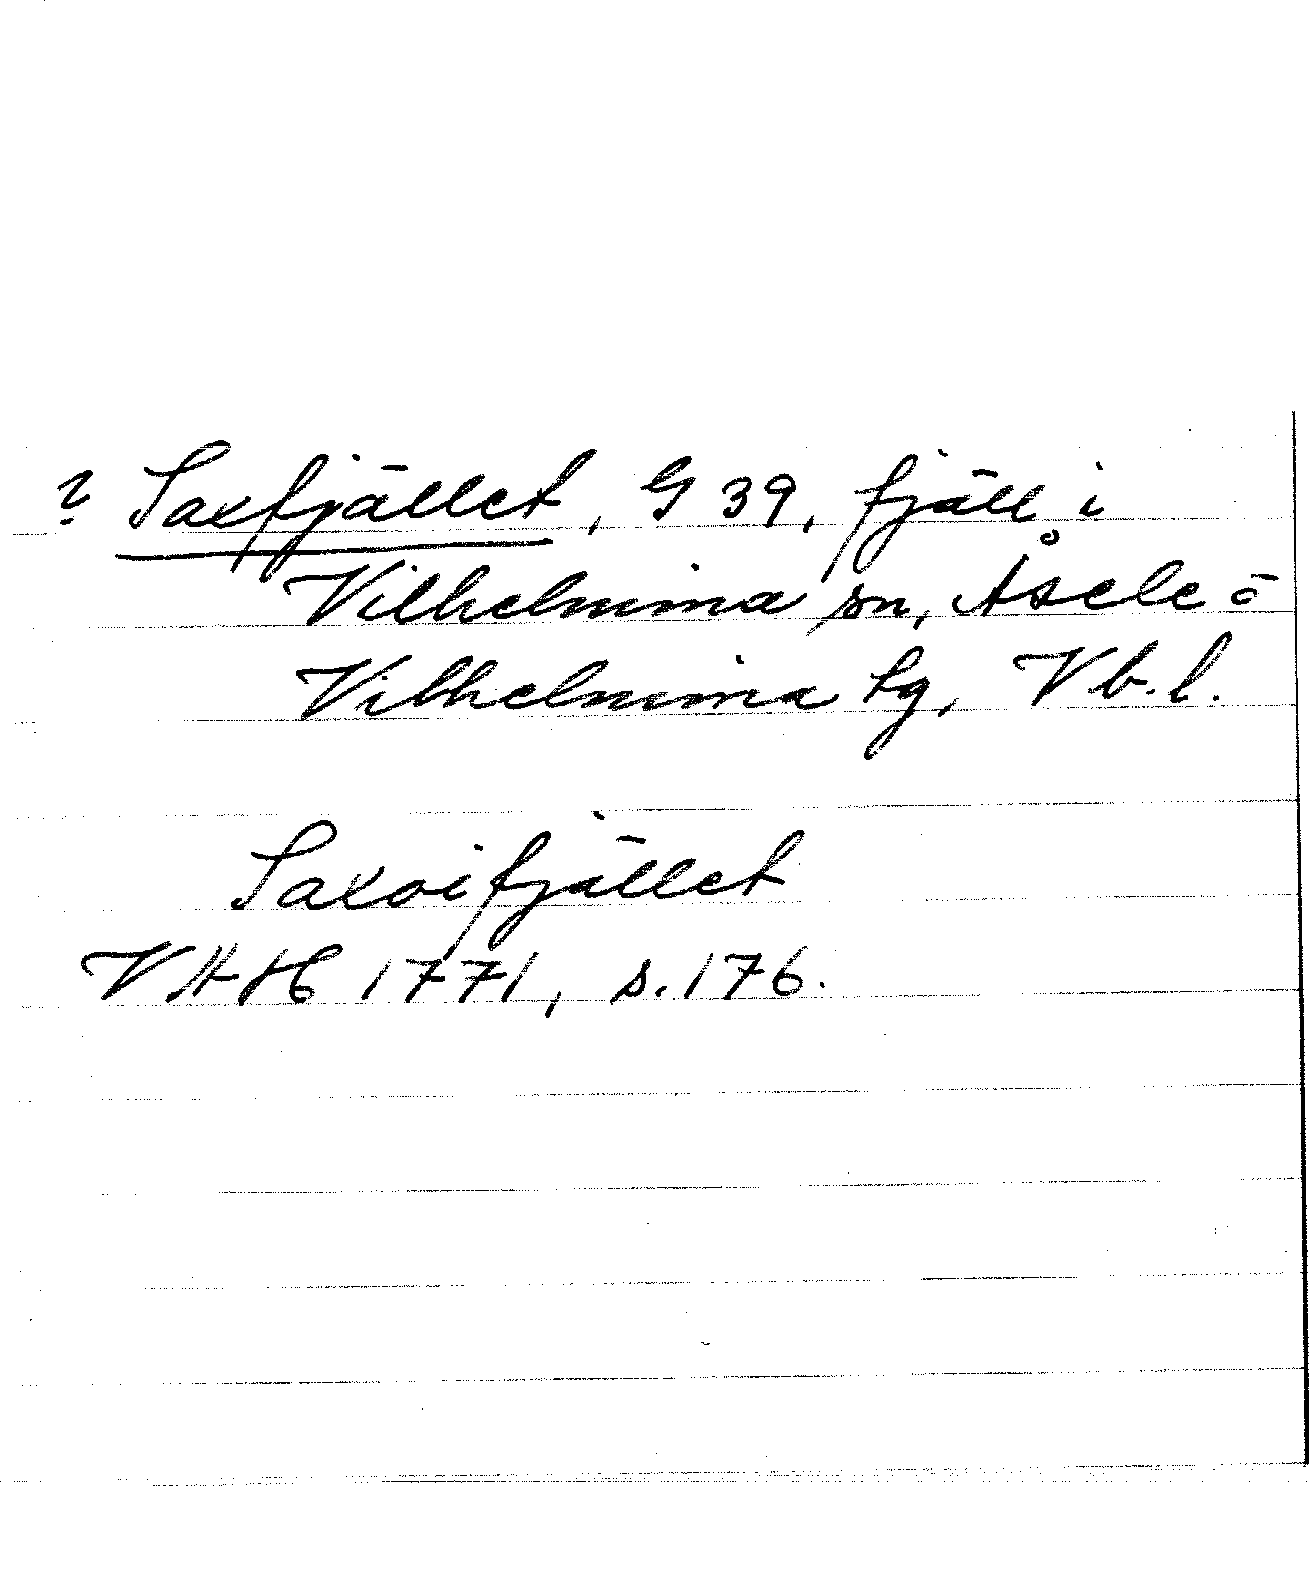 ? Saxfjället, G 39, fjäll i
Vilhelmina sn, Åsele o
Vilhelmina tg, Vb.l.
Saxoifjället
VHAH 1771, s. 176.